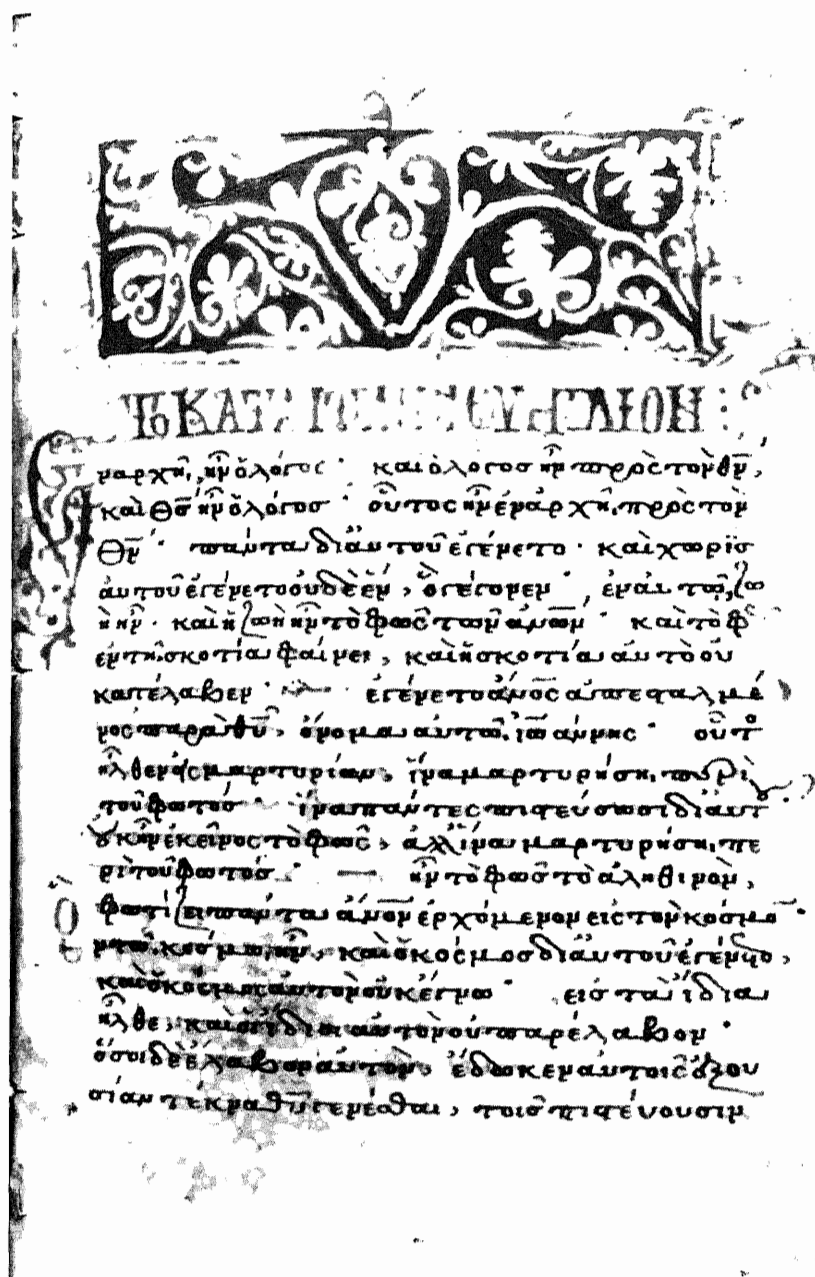 ΤΟ ΚΑΤΑ ΙΩΑΝΝΗΝ ΕΥΑΓΓΕΛΙΟΝ
Ἐν ἀρχῆ, ἦν ὁ λόγος · καὶ ὁ λόγοσ ἦν πρὸς τὸν θ̅ν̅,
καὶ θ̅ς̅ ἦν ὁ λόγοσ · οὗτος ἦν ἐν ἀρχῆ, πρὸς τὸν
θ̅ν̅ · πάντα δι ἀυτοῦ ἐγένετο · καὶ χωρὶσ
ἀυτοῦ ἐγένετο ὀυδὲ ἕν, ὃ γέγονεν · ἐν ἀυτῶ ζω
ὴ ἦν · καὶ ἡ ζωὴ ἦν τὸ φῶς τῶν α̅ν̅ω̅ν̅ · καὶ τὸ φῶς
ἐν τῆ σκοτία φαίνει, καὶ ἡ σκοτία ἀυτὸ οὐ
κατέλαβεν · ἐγένετο α̅ν̅ο̅ς̅ ἀπεσταλμέ
νος παρὰ θ̅υ̅, ὄνομα ἀυτῶ ἰωάννης · οὗτο
ἦλθεν εἰς μαρτυρίαν, ἵνα μαρτυρήση περὶ
τοῦ φωτόσ · ἵνα πάντες πιστεύσωσι δι ἀυτ
οὐκ ἦν ἐκεῖνος τὸ φῶς, ἀλλ ἵνα μαρτυρήση πε
ρὶ τοῦ φωτόσ · ἦν τὸ φῶσ τὸ ἀληθινὸν,
φωτίζει πάντα α̅ν̅ο̅ν̅ ἐρχόμενον εἰς τὸν κόσμο ·
ἐν τῶ κόσμω ἦν, καὶ ὁ κόσμοσ δι ἀυτοῦ ἐγένετο,
καὶ ὁ κόσμος ἀυτὸν οὐκ ἔγνω · εἰσ τὰ ἴδια
ἦλθε, καὶ οἱ ἴδιοι ἀυτὸν οὐ παρέλαβον ·
ὅσοι δὲ ἔλαβον ἀυτὸν, ἔδωκεν ἀυτοῖς ἐξου
σίαν τέκνα θ̅υ̅ γενέσθαι, τοῖσ πιστέυουσιν